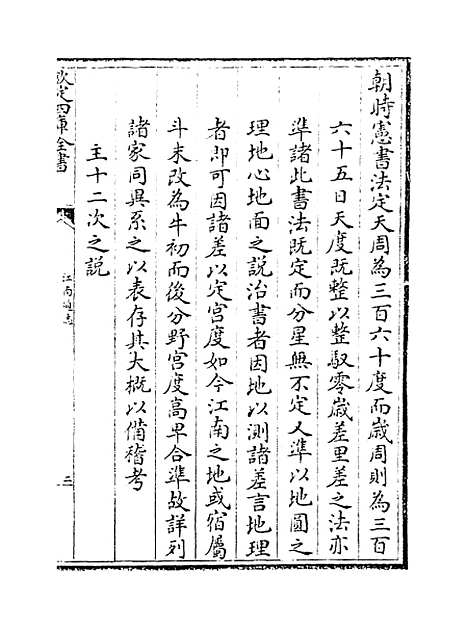 朝時憲書法定天周為三百六十度而歲周則為三百
六十五日天度既整以整馭零歲差里差之法亦
準諸此書法既定而分星無不定又準以地圓之
理地心地面之說治書者因地以測諸差言地理
者即可因諸差以定宮度如今江南之地或宿屬
斗末改為牛初而後分野宮度高卑合準故詳列
諸家同異系之以表存其大概以備稽考
主十二次之說
欽定四庫全書
江南通志
三